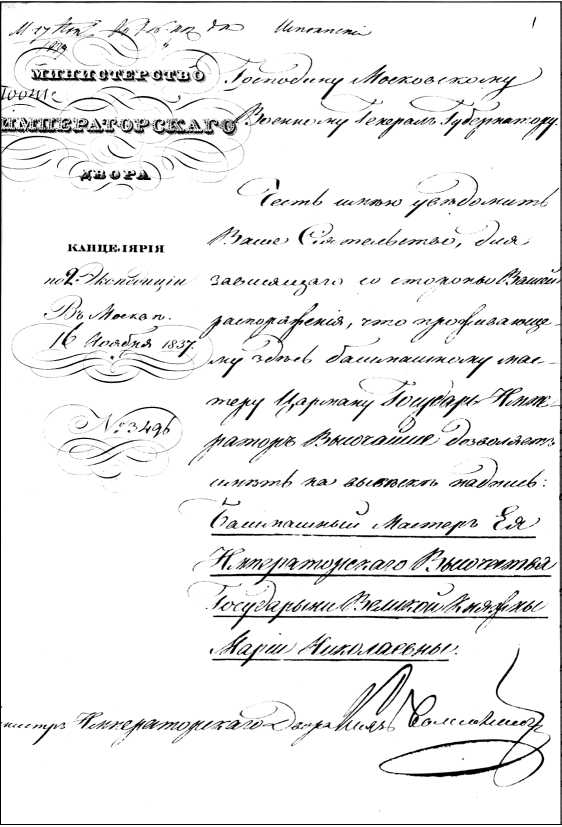 1
МИНИСТЕРСТВО
ИМПЕРАТОРСКАГО
ДВОРА
КАНЦЕЛЯРІЯ
по 2. Экспедиціи
Въ Москвѣ.
16 Ноября 1837.
№ 3496
Господину Московскому
Военному Генералъ Губернатору.
Честь имѣю увѣдомить
Ваше Сіятельство, для
зависящаго со стороны Вашей
распоряженія, что проживающе-
му здѣсь башмашному мас-
теру Царпаку Государь Импе-
раторъ Высочайше дозволяетъ
имѣть на вывѣскѣ надпись:
Башмашный Мастеръ Ея
Императорскаго Высочества
Государыни Великой Княжны
Маріи Николаевны.
Министръ Императорскаго Двора Князь